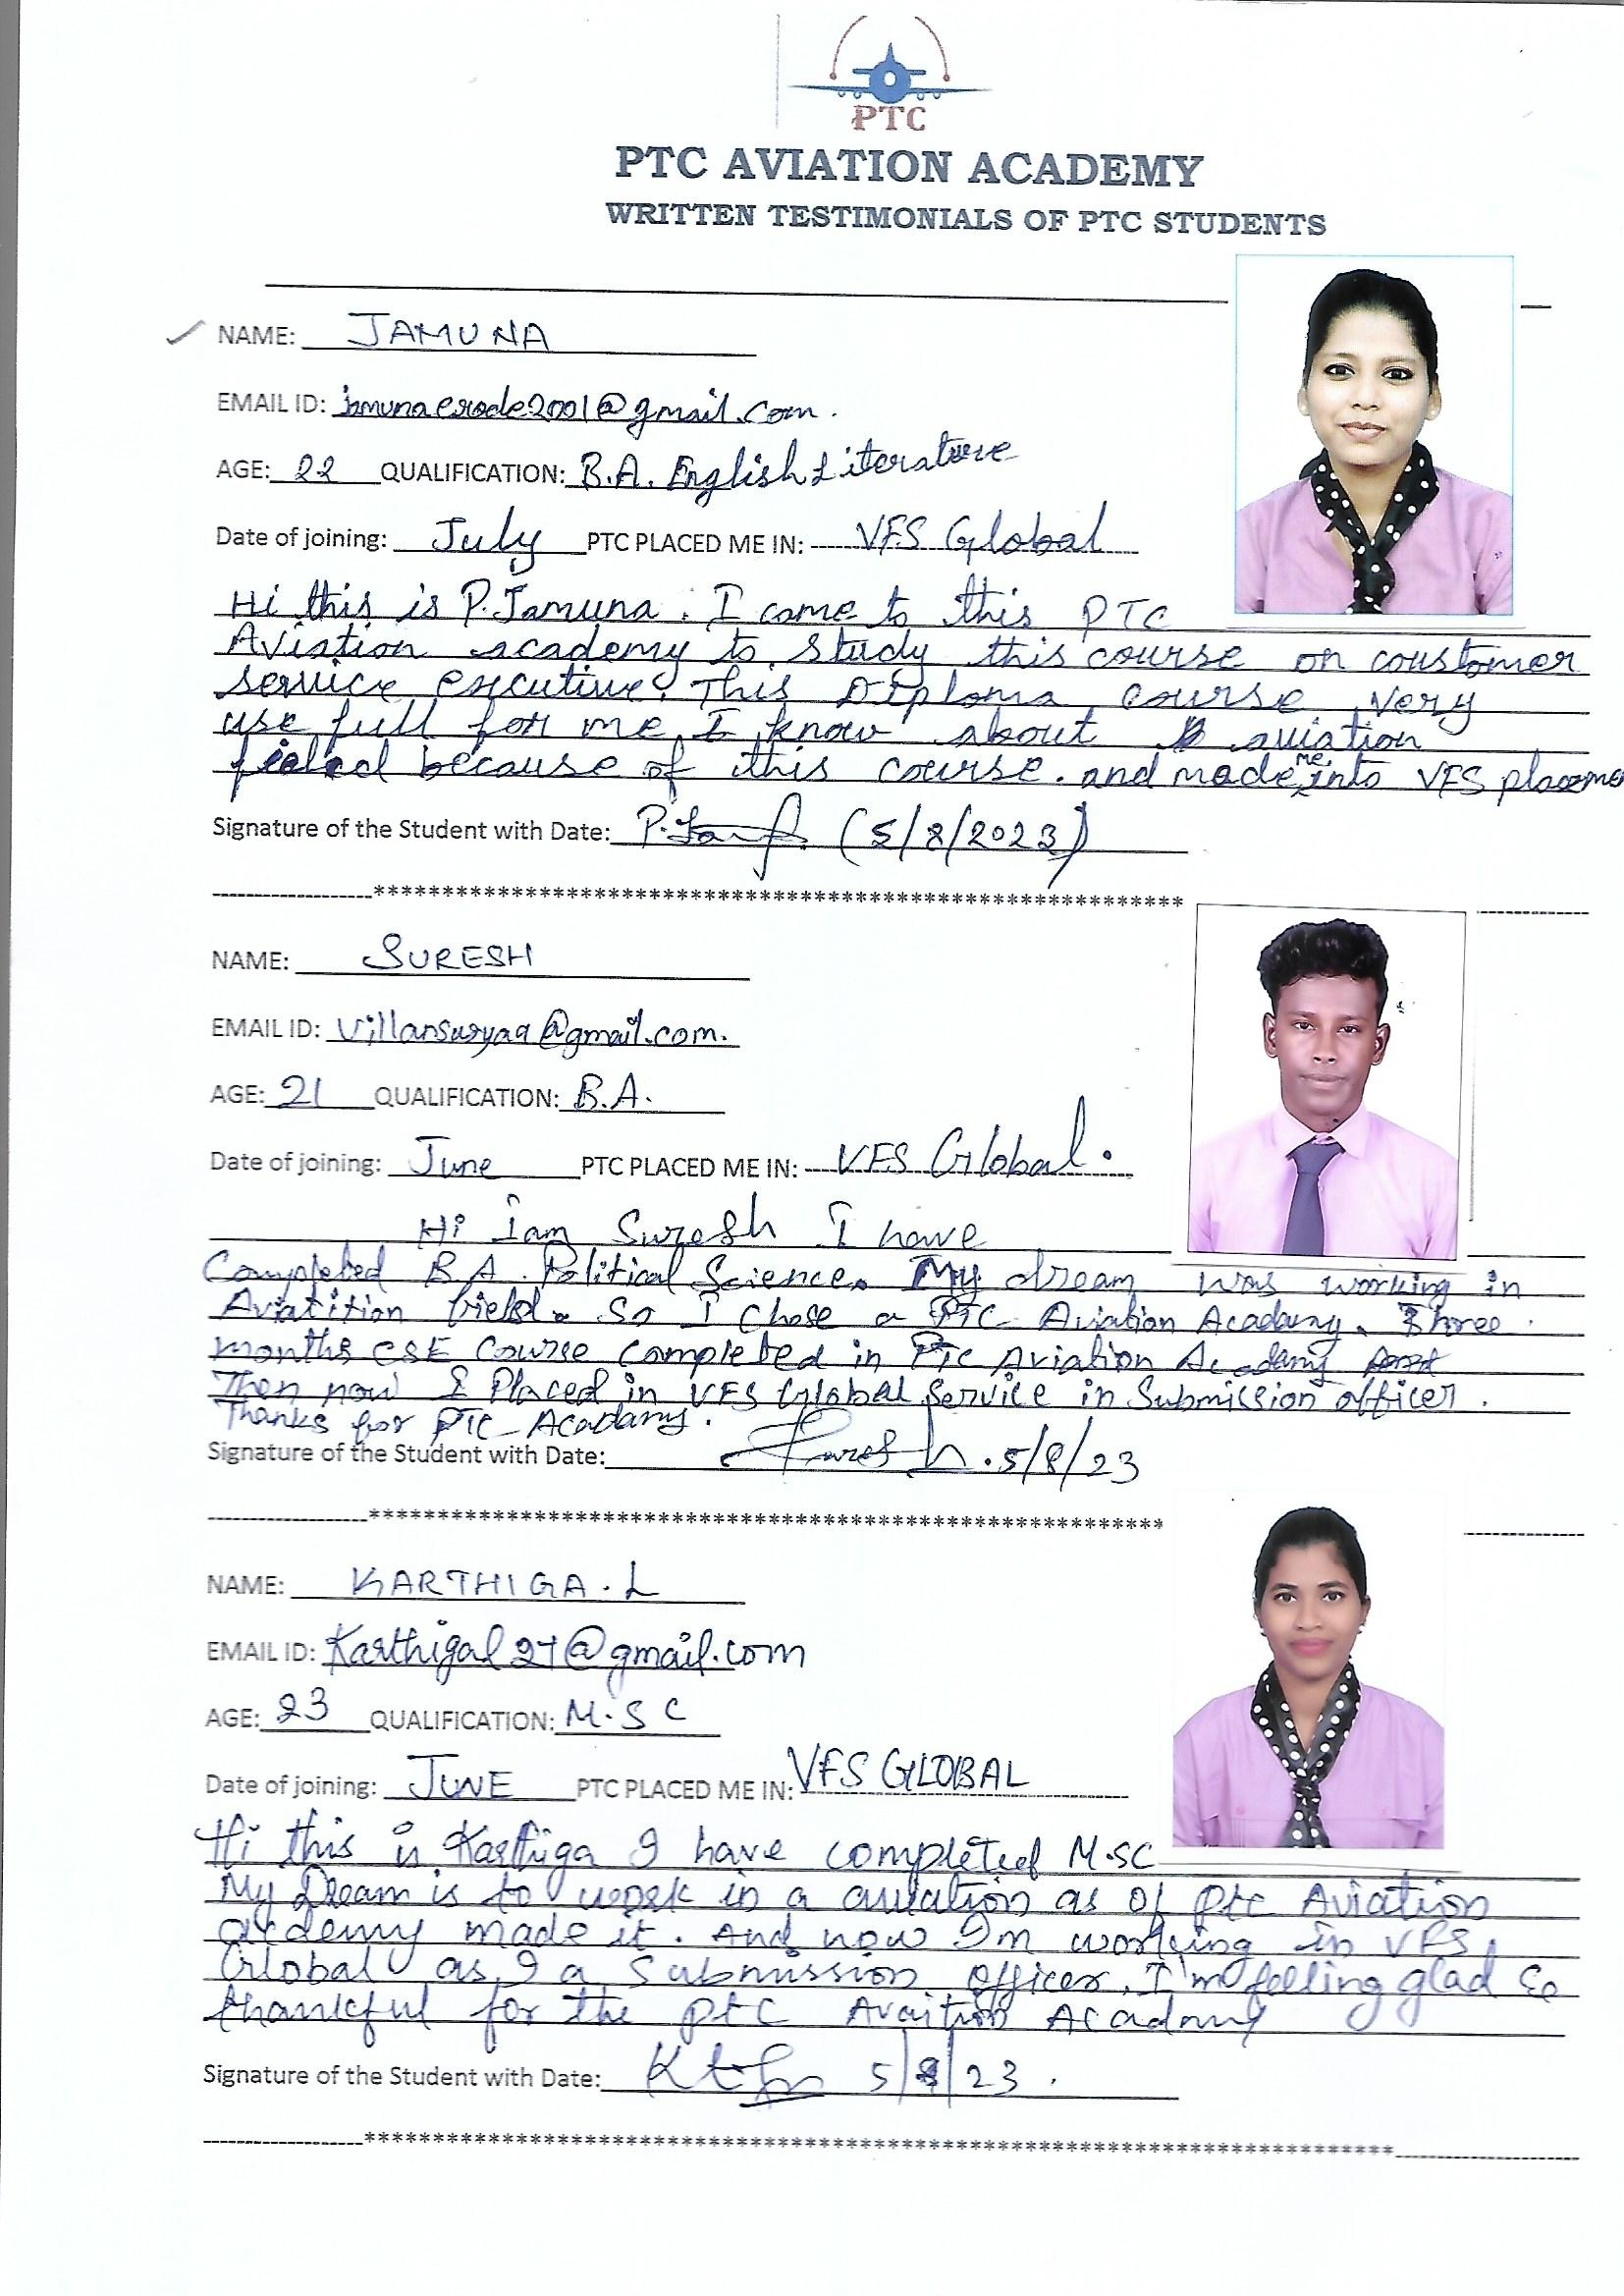 PTC
PTC AVIATION ACADEMY
WRITTEN TESTIMONIALS OF PTC STUDENTS
NAME: JAMUNA
EMAIL ID: jamunaerode2001@gmail.com.
AGE: 22 QUALIFICATION: B.A. English Literature
Date of joining: July PTC PLACED ME IN: VFS Global
Hi this is P.Jamuna. I came to this PTC
Aviation academy to study this course on coustomer
service executive. This Diploma course very
use full for me I know about aviation
because of this course. and made me into VFS placeme
Signature of the Student with Date: (5/8/2023)
*****************************************************************
NAME: SURESH
EMAIL ID: Villansuryaa@gmail.com.
AGE: 21 QUALIFICATION: B.A.
Date of joining: June PTC PLACED ME IN: VFS Global.
Hi Iam Suresh I have
Completed B.A. Political Science. My dream was working in
Aviatition field. So I chose a PTC Aviation Acadamy. Three
months CSE Course completed in Ptc Aviation Acadamy
Then now I Placed in VFS Global Service in Submission officer.
Thanks for PTC Acadamy.
Signature of the Student with Date: Suresh. 5/8/23
*****************************************************************
NAME: KARTHIGA. L
EMAIL ID: Karthigal27@gmail.com
AGE: 23 QUALIFICATION: M.SC
Date of joining: JUNE PTC PLACED ME IN: VFS GLOBAL
Hi this is Karthiga I have completed M.SC
My Dream is to work in a aviation as of Ptc Aviation
acdemy made it. And now I'm working in VFS
Global as I a Submission Officer. I'm felling glad &
thankful for the PtC Avaition Acadamy
Signature of the Student with Date: 5/8/23.
*****************************************************************